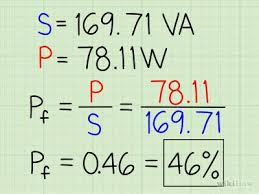 S = 169.71 VA
P = 78.11 W
Pf = P/S = 78.11/169.71
Pf = 0.46 = 46%
wikiHow